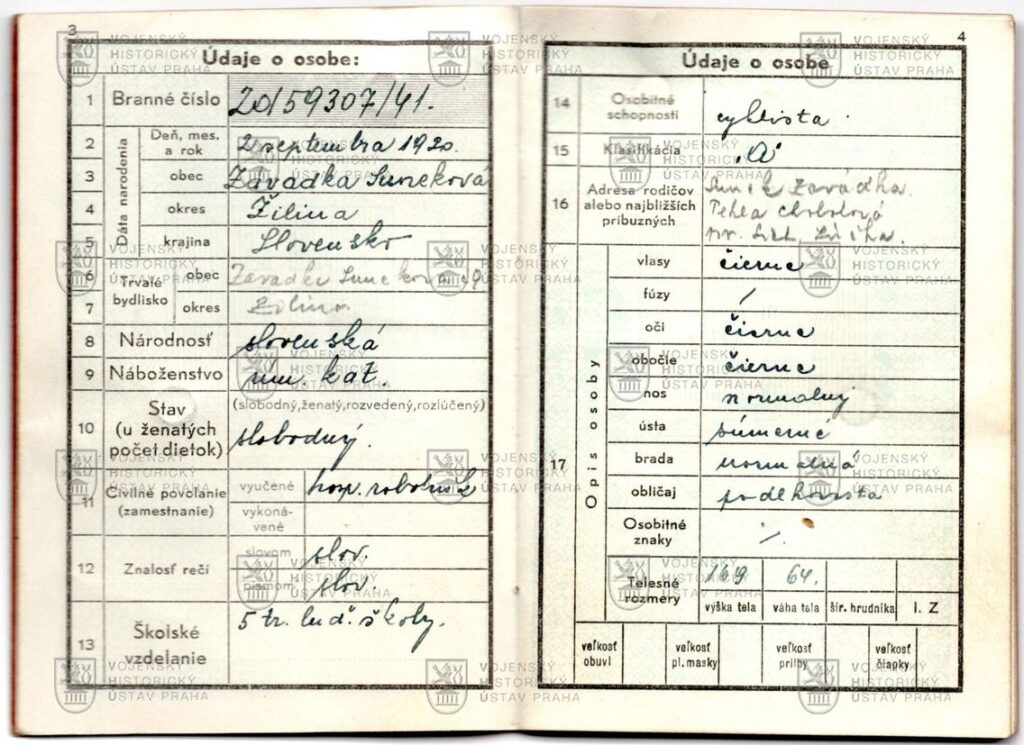 3
Údaje o osobe:
1 Branné číslo 20/59307/41.
Dáta narodenia
2 Deň, mes. a rok 2 septembra 1920.
3 obec Závadka Suneková
4 okres Žilina
5 krajina Slovensko
Trvalé bydlisko
6 obec Zavadka
7 okres Žilina
8 Národnosť slovenská
9 Náboženstvo rím. kat.
10 Stav (u ženatých počet dietok) (slobodný,ženatý,rozvedený,rozlúčený)
slobodný.
11 Civilné povolanie (zamestnanie)
vyučené hosp. robotník
vykoná-
vané
12 Znalosť rečí
slovom slov.
písmom slov.
13 Školské vzdelanie 5 tr. ľud. školy.
4
Údaje o osobe
14 Osobitné schopnosti cyklista.
15 Klasifikácia "A"
16 Adresa rodičov alebo najbližších príbuzných
Zavádka.
17 Opis osoby
vlasy čierne
fúzy /
oči čierne
obočie čierne
nos normalný
ústa súmerné
brada normalná
obličaj podlhovista
Osobitné znaky ./.
Telesné rozmery 169 64.
výška tela váha tela šír. hrudníka I. Z
veľkosť obuvi
veľkosť pl. masky
veľkosť prilby
veľkosť čiapky
VOJENSKÝ
HISTORICKÝ
ÚSTAV PRAHA